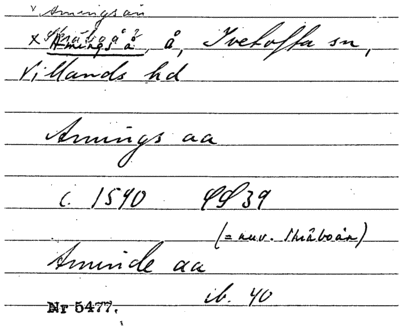 v Amingsån
x Skräboå? Amings å, å, Ivetofta sn,
Villands hd
Amings aa
c. 1590 39
(= nuv. Skräboån)
Aminde aa
ib. 40
Nr 5477.